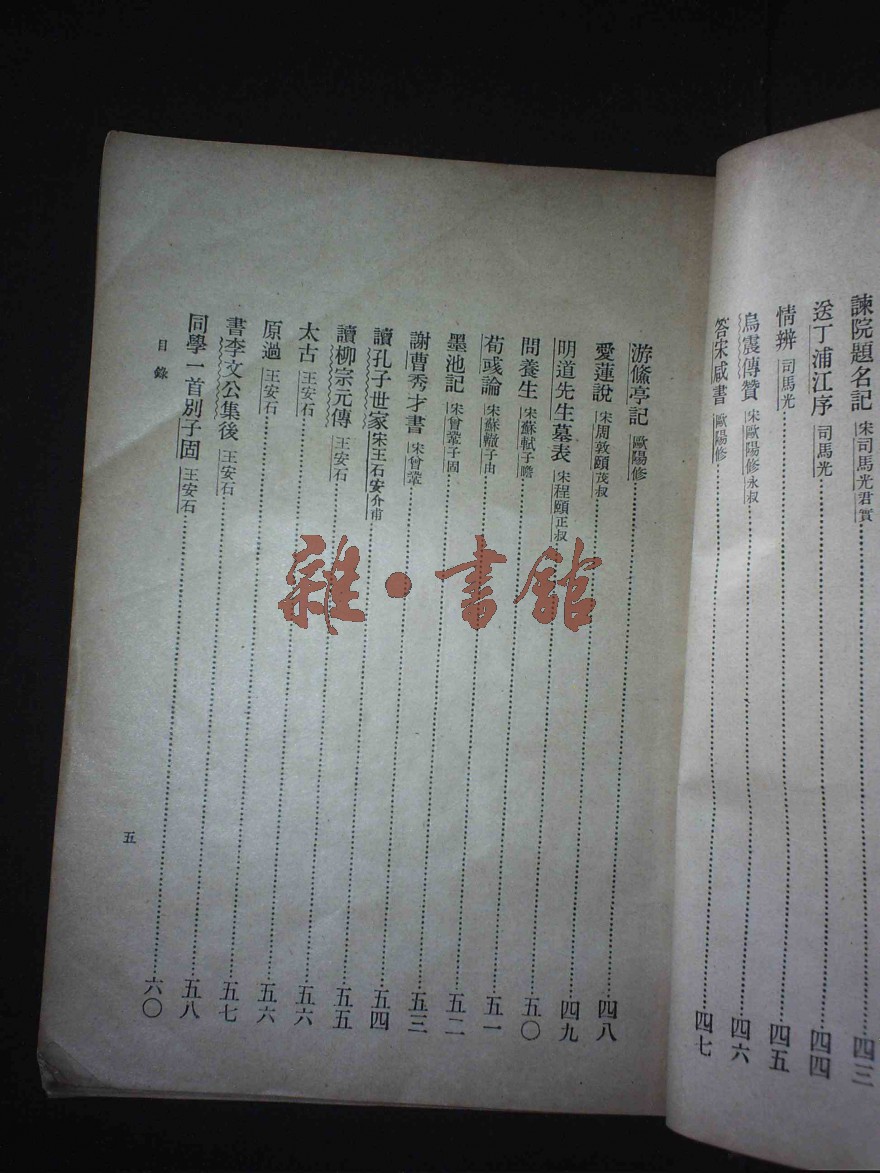 諫院題名記 宋司馬光君實 四三
送丁浦江序 司馬光 四四
情辨 司馬光 四五
烏震傳贊 宋歐陽修永叔 四六
答宋咸書 歐陽修 四七
游鯈亭記 歐陽修 四八
愛蓮說 宋周敦頤茂叔 四九
明道先生墓表 宋程頤正叔 五〇
問養生 宋蘇軾子瞻 五一
荀彧論 宋蘇轍子由 五二
墨池記 宋曾鞏子固 五三
謝曹秀才書 宋曾鞏 五四
讀孔子世家 宋王石安介甫 五五
讀柳宗元傳 王安石 五六
太古 王安石 五六
原過 王安石 五七
書李文公集後 王安石 五八
同學一首別子固 王安石 六〇
目錄
五
雜·書館